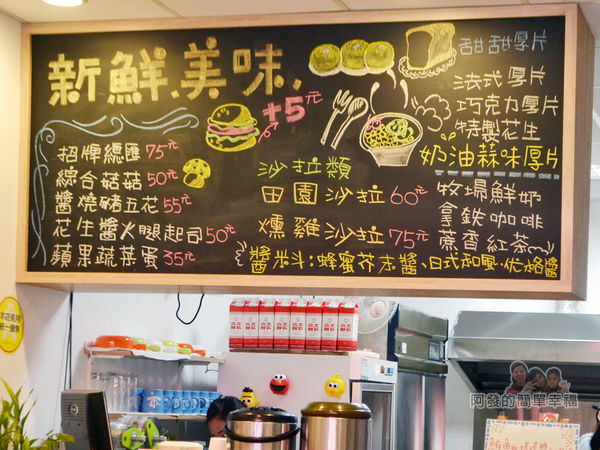 新鮮.美味.
招牌總匯 75元
綜合菇菇 50元
醬燒豬五花 55元
花生醬火腿起司 50元
蘋果蔬菜蛋 35元
+5元
沙拉類
田園沙拉 60元
燻雞沙拉 75元
醬料:蜂蜜芥末醬、日式和風、优格醬
甜甜厚片
法式厚片
巧克力厚片
特製花生
奶油蒜味厚片
牧場鮮奶
拿鐵咖啡
蔗香紅茶
本店使用
統一發票
阿發的簡單幸福